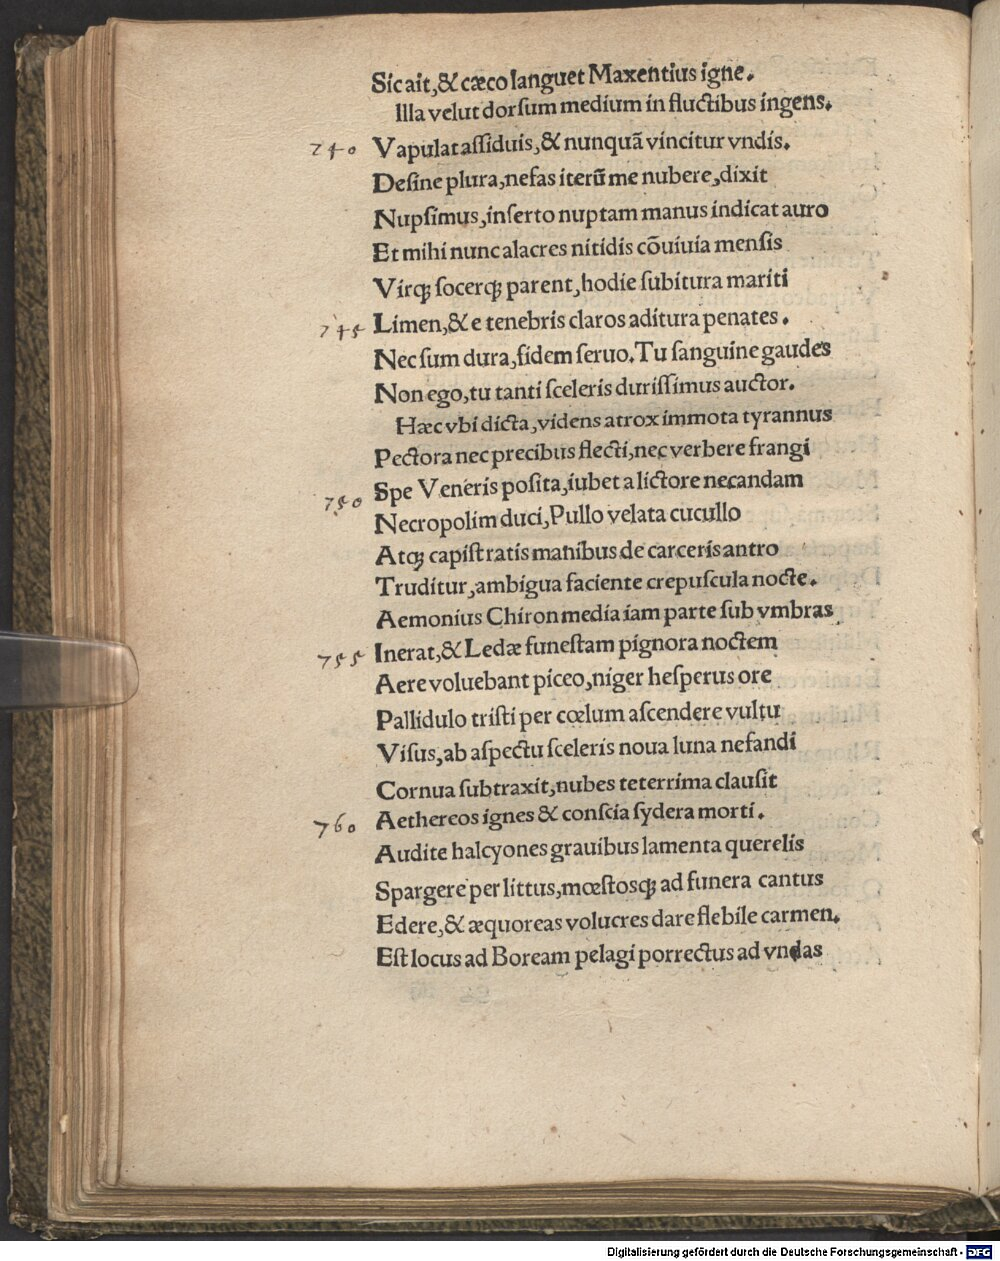 Sic ait, & cæco languet Maxentius igne.
Illa velut dorſum medium in fluctibus ingens.
740 Vapulat aſſiduis, & nunquā vincitur vndis.
Deſine plura, nefas iterū me nubere, dixit
Nupſimus, inſerto nuptam manus indicat auro
Et mihi nunc alacres nitidis cōuiuia menſis
Virqꝫ ſocerqꝫ parent, hodie ſubitura mariti
745 Limen, & e tenebris claros aditura penates.
Nec ſum dura, fidem ſeruo. Tu ſanguine gaudes
Non ego, tu tanti ſceleris duriſſimus auctor.
Hæc vbi dicta, videns atrox immota tyrannus
Pectora nec precibus flecti, nec verbere frangi
750 Spe Veneris poſita, iubet a lictore necandam
Necropolim duci, Pullo velata cucullo
Atqꝫ capiſtratis manibus de carceris antro
Truditur, ambigua faciente crepuſcula nocte.
Aemonius Chiron media iam parte ſub vmbras
755 Inerat, & Ledæ funeſtam pignora noctem
Aere voluebant piceo, niger heſperus ore
Pallidulo triſti per cœlum aſcendere vultu
Viſus, ab aſpectu ſceleris noua luna nefandi
Cornua ſubtraxit, nubes teterrima clauſit
760 Aethereos ignes & conſcia ſydera morti.
Audite halcyones grauibus lamenta querelis
Spargere per littus, mœſtosqꝫ ad funera cantus
Edere, & æquoreas volucres dare flebile carmen.
Eſt locus ad Boream pelagi porrectus ad vndas
Digitalisierung gefördert durch die Deutsche Forschungsgemeinschaft - DFG